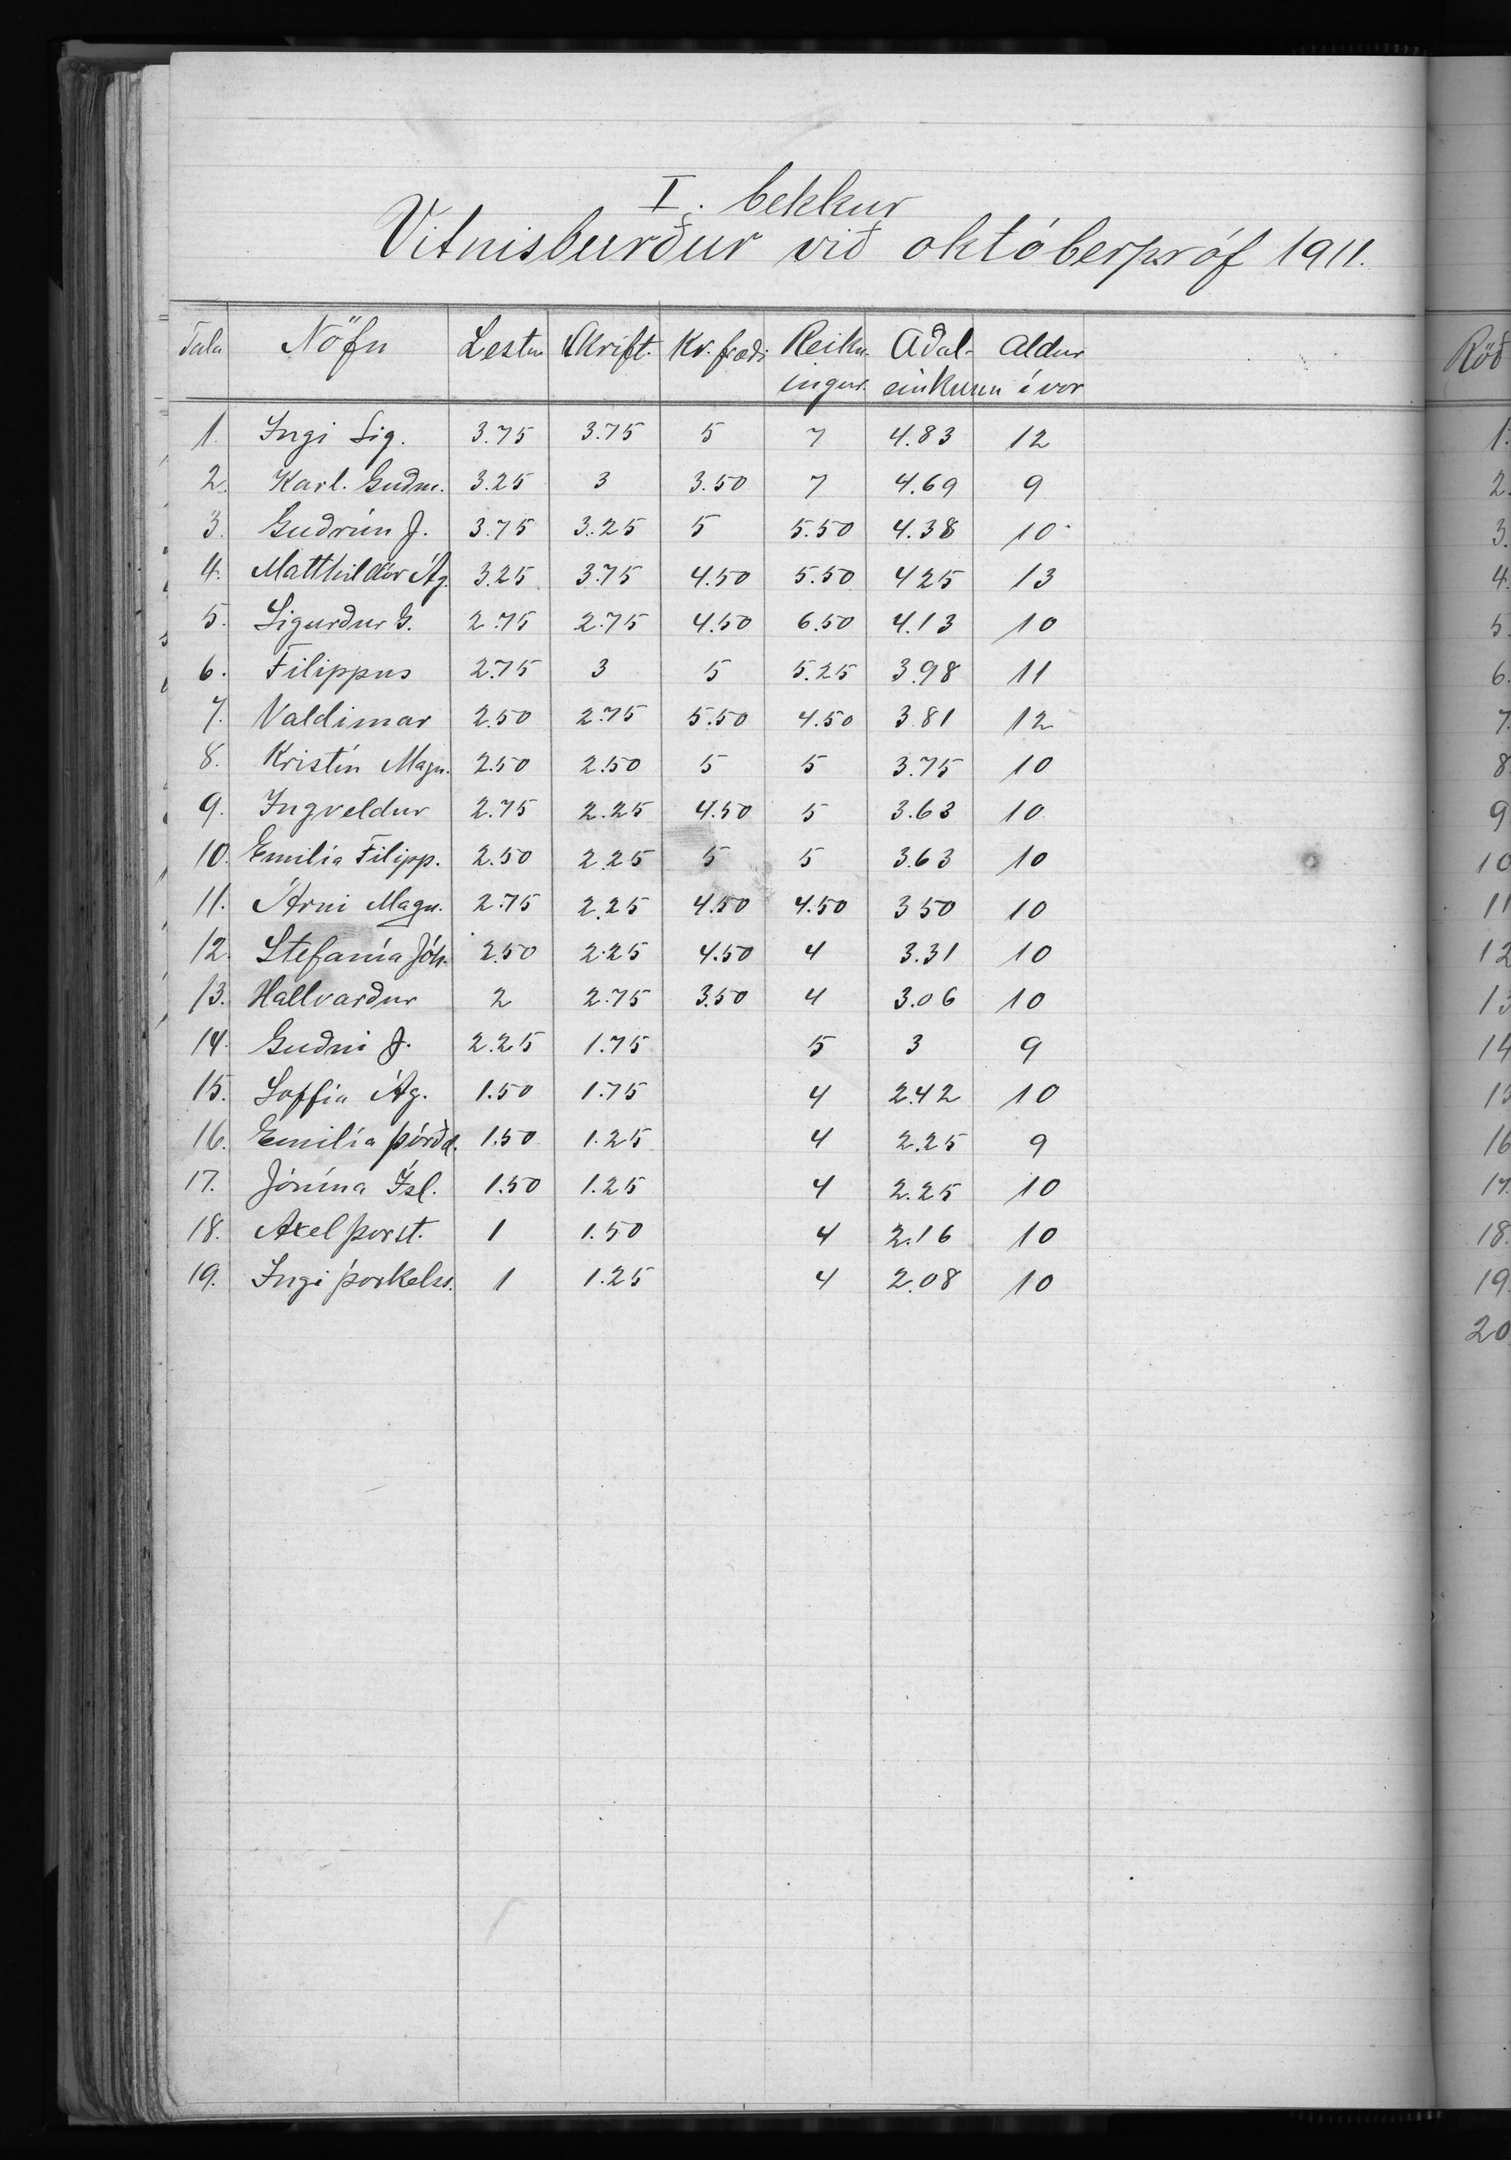 I. bekkur
Vitnisburður við októberpróf 1911.
Tala Nöfn Lestur Skrift. Kr. fræði Reikn- Aðal- Aldur
ingur. einkunn í vor
1. Ingi Sig. 3.75 3.75 5 7 4.83 12
2. Karl. Guðm. 3.25 3 3.50 7 4.69 9
3. Guðrún J. 3.75 3.25 5 5.50 4.38 10
4. Matthildur Ág. 3.25 3.75 4.50 5.50 4.25 13
5. Sigurður G. 2.75 2.75 4.50 6.50 4.13 10
6. Filippus 2.75 3 5 5.25 3.98 11
7. Valdimar 2.50 2.75 5.50 4.50 3.81 12
8. Kristín Magn. 2.50 2.50 5 5 3.75 10
9. Ingveldur 2.75 2.25 4.50 5 3.63 10
10. Emilía Filipp. 2.50 2.25 5 5 3.63 10
11. Árni Magn. 2.75 2.25 4.50 4.50 3.50 10
12. Stefanía Jóh. 2.50 2.25 4.50 4 3.31 10
13. Hallvarður 2 2.75 3.50 4 3.06 10
14. Guðni J. 2.25 1.75 5 3 9
15. Soffía Ág. 1.50 1.75 4 2.42 10
16. Emilía Þórðd. 1.50 1.25 4 2.25 9
17. Jónína Ísl. 1.50 1.25 4 2.25 10
18. Axel Þorst. 1 1.50 4 2.16 10
19. Ingi Þorkelss. 1 1.25 4 2.08 10
Röð
1.
2.
3.
4.
5.
6.
7.
8
9
10
11
12
13
14
15
16
17.
18.
19.
20